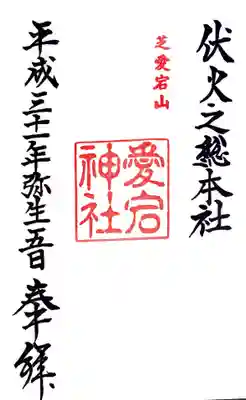 伏火之総本社
芝愛宕山
愛宕神社
平成三十一年弥生五日 奉拝